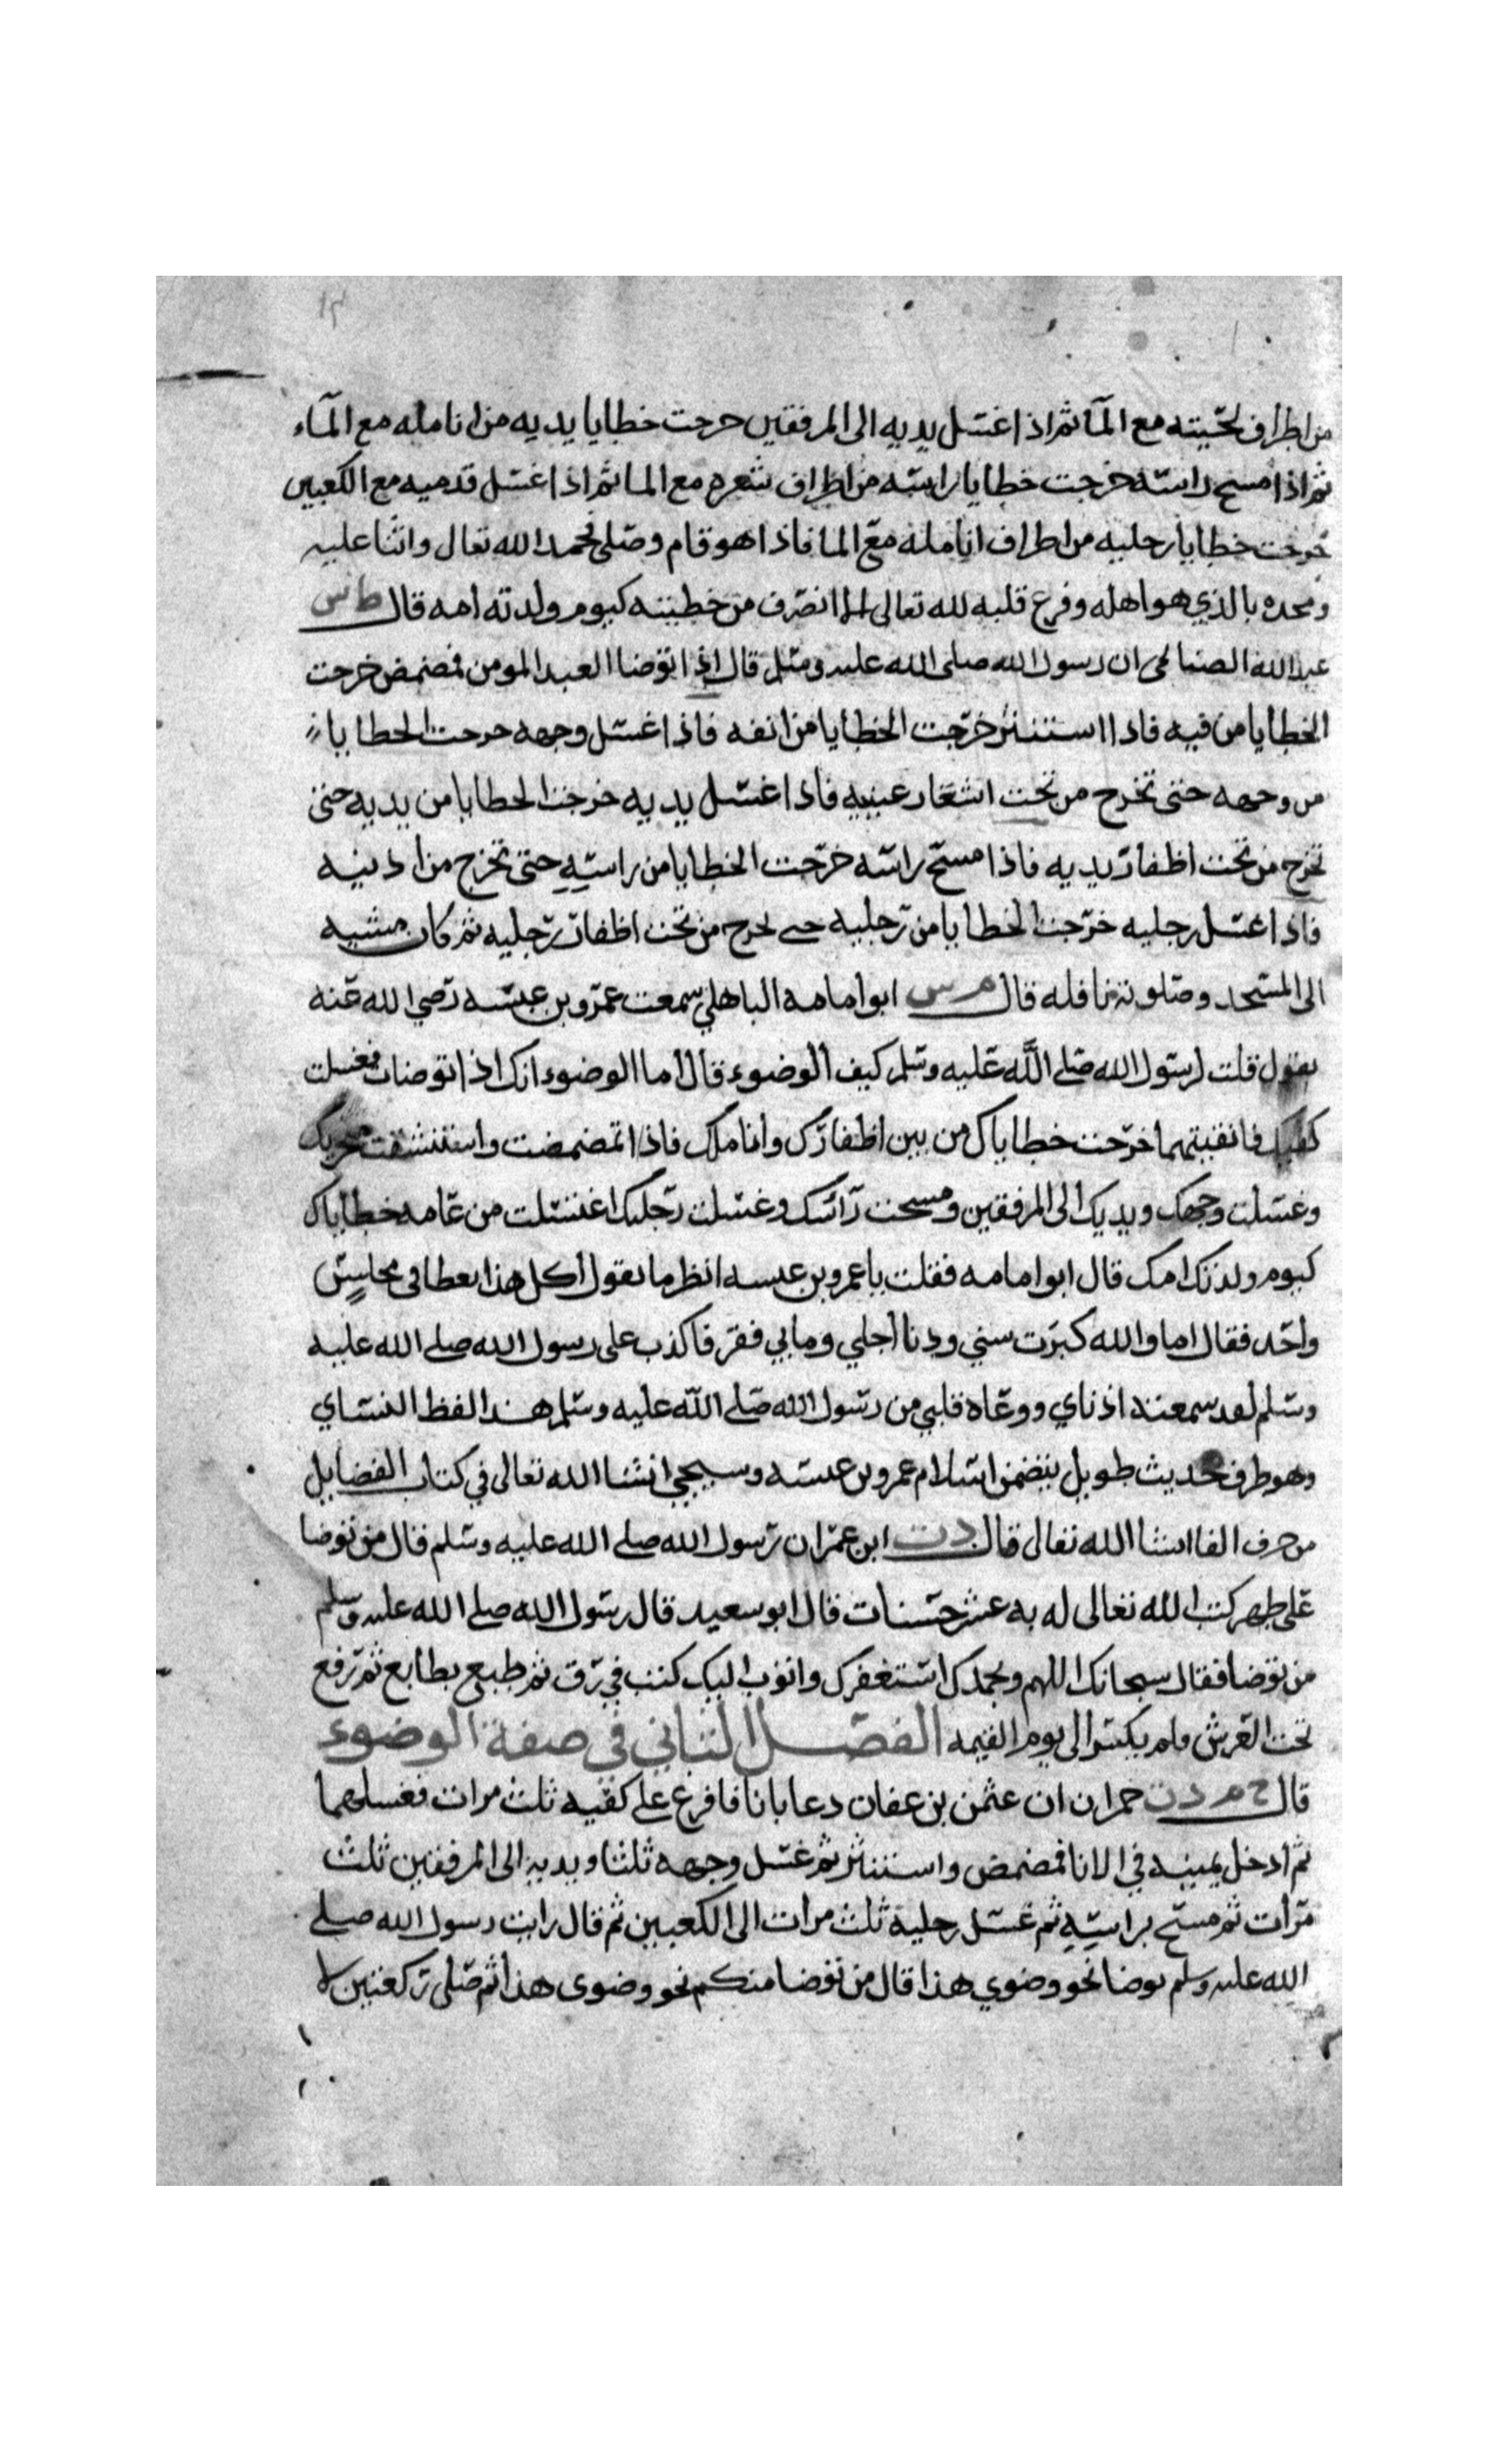 ١٣
من اطراف لحيته مع المآ ثم اذ اغسل يديه الى المرفقين خرجت خطايا يديه من انامله مع المآء
ثم اذا مسح راسه خرجت خطايا راسه من اطراف شعره مع الما ثم اذا غسل قدميه مع الكعبين
خرجت خطايا رجليه من اطراف انامله مع الما فاذا هو قام وصلى فحمد الله تعالى واثنا عليه
ومجده بالذي هو اهله وفرغ قلبه لله تعالى الا انصرف من خطيئته كيوم ولدته امه قال ط س
عبد الله الصنابحى ان رسول الله صلى الله عليه وسلم قال اذا توضا العبد المومن فمضمض خرجت
الخطايا من فيه فاذا استنثر خرجت الخطايا من انفه فاذا غسل وجهه خرجت الخطايا
من وجهه حتى تخرج من تحت اشعار عينيه فاذا غسل يديه خرجت الخطايا من يديه حتى
تخرج من تحت اظفار يديه فاذا مسح راسه خرجت الخطايا من راسه حتى تخرج من اذنيه
فاذا غسل رجليه خرجت الخطايا من رجليه حتى تخرج من تحت اظفار رجليه ثم كان مشيه
الى المسجد وصلوته نافله قال م س ابو امامه الباهلي سمعت عمرو بن عبسه رضي الله عنه
يقول قلت لرسول الله صلى الله عليه وسلم كيف الوضوء قال اما الوضوء انك اذا توضات فغسلت
كفيك فانقيتهما خرجت خطاياك من بين اظفارك واناملك فاذا تمضمضت واستنشقت منخريك
وغسلت وجهك ويديك الى المرفقين ومسحت رائسك وغسلت رجليك اغتسلت من عامه خطاياك
كيوم ولدتك امك قال ابو امامه فقلت يا عمرو بن عبسه انظر ما تقول اكل هذا يعطا فى مجلس
واحد فقال اما والله كبرت سني ودنا اجلي وما بي فقر فاكذب على رسول الله صلى الله عليه
وسلم لقد سمعته اذناي ووعاه قلبي من رسول الله صلى الله عليه وسلم هذا لفظ النساي
وهو طرف حديث طويل يتضمن اسلام عمرو بن عبسه وسيجي انشا الله تعالى في كتاب الفضايل
من حرف الفا انشا الله تعالى قال د ت ابن عمر ان رسول الله صلى الله عليه وسلم قال من توضا
على طهر كتب الله تعالى له به عشر حسنات قال ابو سعيد قال رسول الله صلى الله عليه وسلم
من توضا فقال سبحانك اللهم وبحمدك استغفرك واتوب اليك كتب في رق ثم طبع بطابع ثم رفع
تحت العرش فلم يكسر الى يوم القيمه الفصل الثاني في صفة الوضوء
قال خ م د ن حمران ان عثمن بن عفان دعا بانا فافرغ على كفيه ثلث مرات فغسلهما
ثم ادخل يمينه في الانا فمضمض واستنثر ثم غسل وجهه ثلثا ويديه الى المرفقين ثلث
مرات ثم مسح براسه ثم غسل رجليه ثلث مرات الى الكعبين ثم قال رايت رسول الله صلى
الله عليه وسلم توضا نحو وضوي هذا قال من توضا منكم نحو وضوى هذا ثم صلى ركعتين لا